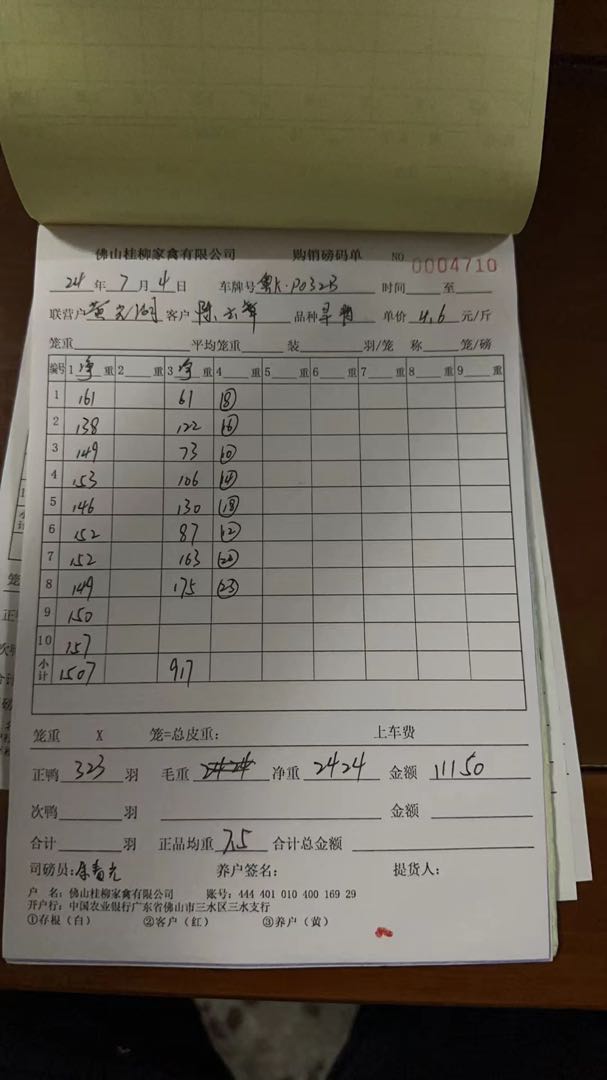 佛山桂柳家禽有限公司 购销磅码单 NO 0004710
24 年 7 月 4 日 车牌号 粤K·P032B 时间 至
联营户 黄 客户 陈 品种 单价 4.6 元/斤
笼重 平均笼重 装 羽/笼 称 笼/磅
编号 1 净 重 2 重 3 净 重 4 重 5 重 6 重 7 重 8 重 9 重
1 161 61 ⑱
2 138 122 ⑯
3 149 73 ⑩
4 153 106 ⑭
5 146 130 ⑱
6 152 87 ⑫
7 152 163
8 149 175 ㉓
9 150
10 157
小计 1507 917
笼重 X 笼=总皮重: 上车费
正鸭 323 羽 毛重 2424 净重 2424 金额 11150
次鸭 羽 金额
合计 羽 正品均重 7.5 合计总金额
司磅员: 养户签名: 提货人:
户 名: 佛山桂柳家禽有限公司 账号: 444 401 010 400 169 29
开户行: 中国农业银行广东省佛山市三水区三水支行
①存根(白) ②客户(红) ③养户(黄)